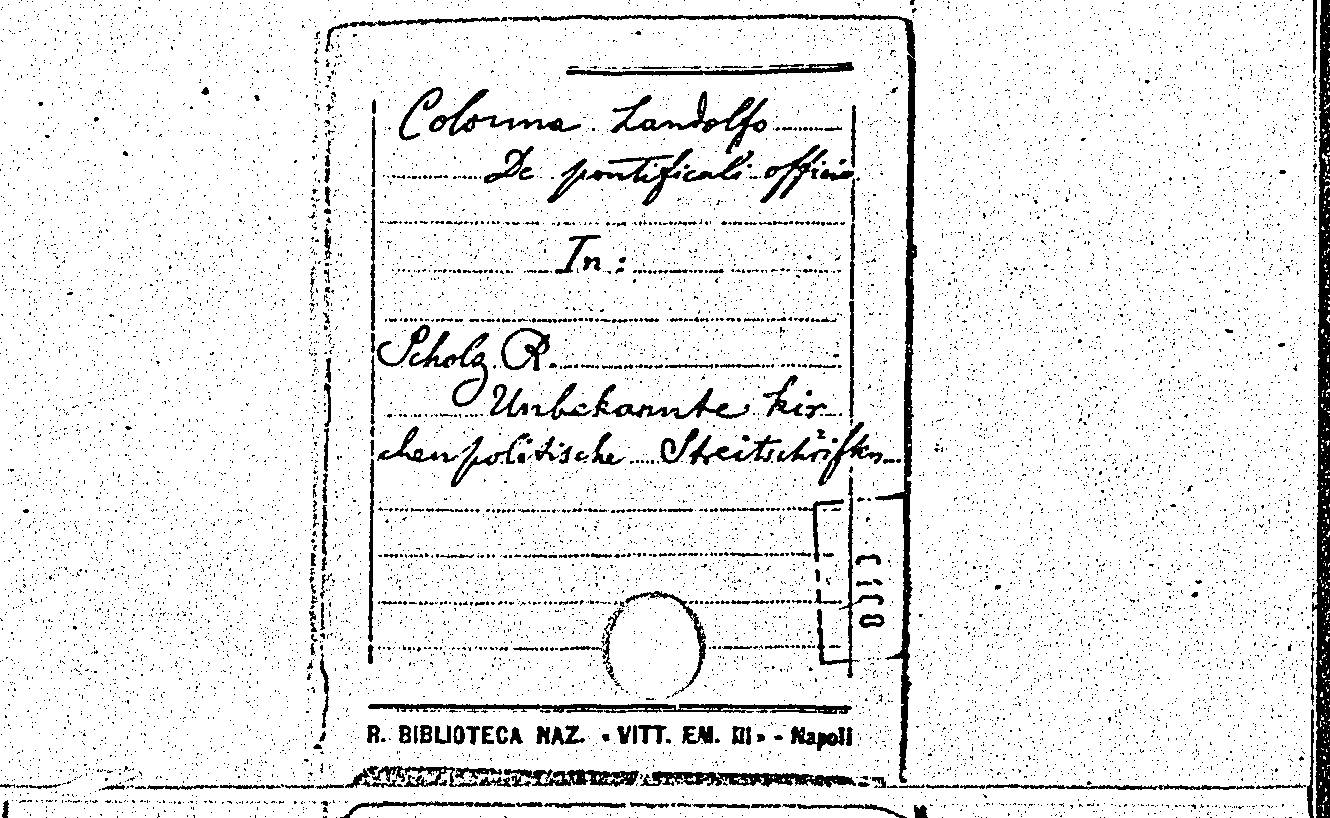 Colonna Landolfo
De pontificali officio
In:
Scholz R.
Unbekannte kir
chenpolitische Streitschriften
R. BIBLIOTECA NAZ. «VITT. EM. III» - Napoli